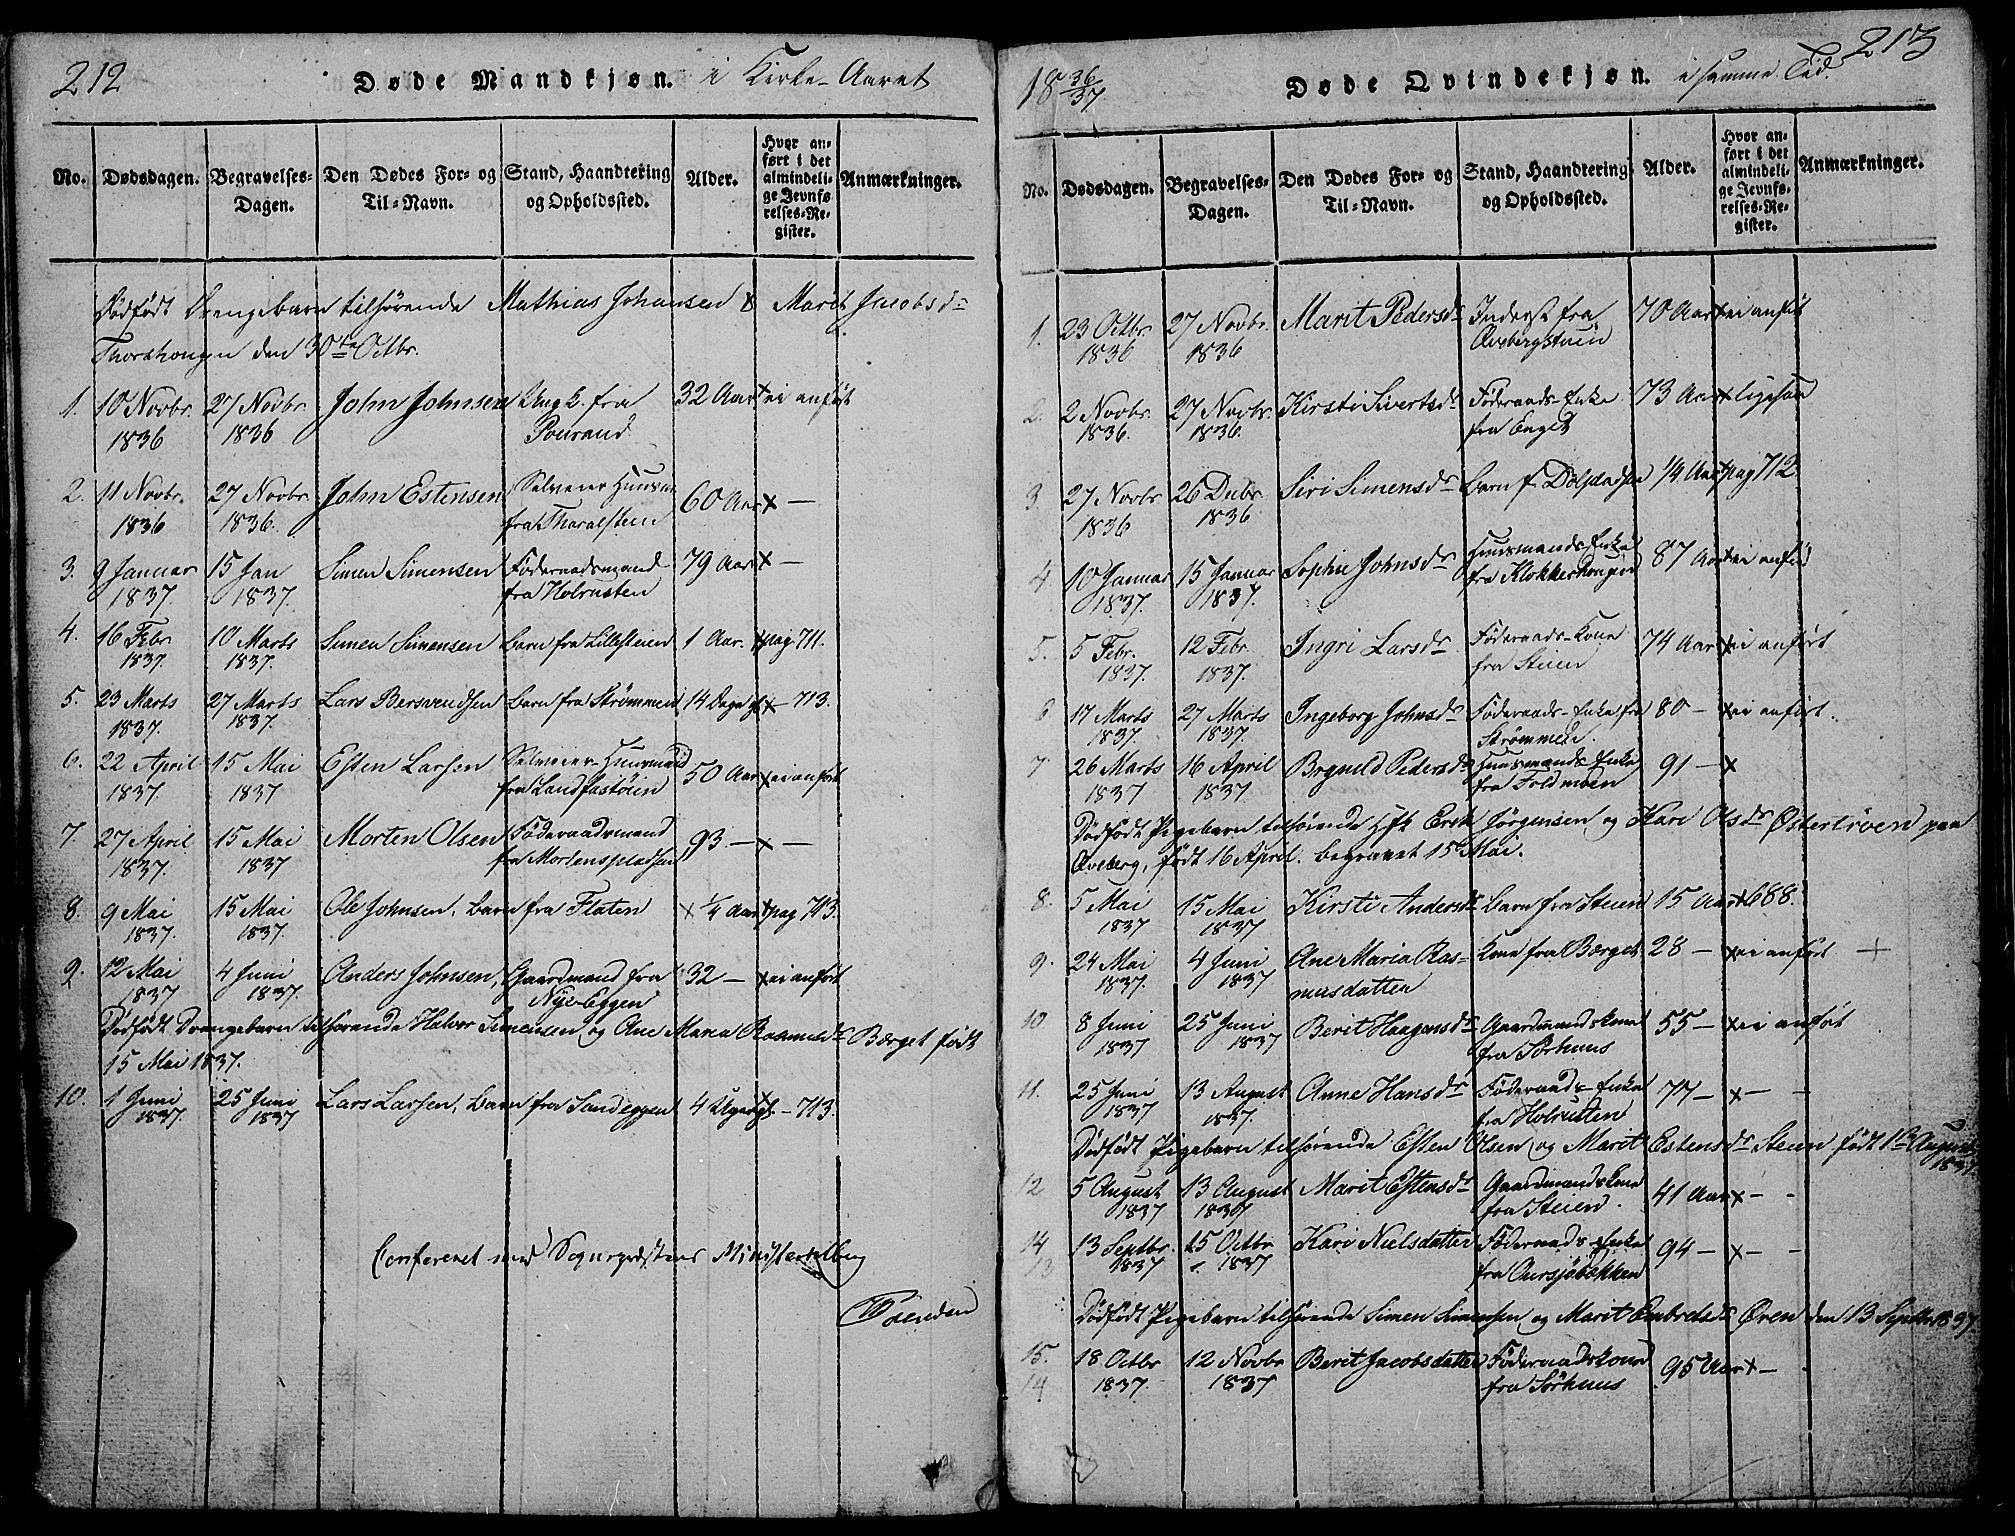 212
Døde Mandkjøn. i Kirke-Aaret
No.
Dødsdagen.
Begravelses-
Dagen.
Den Dødes For- og
Til-Navn.
Stand, Haandtering
og Opholdssted.
Alder.
Hvor an-
ført i det
almindeli-
ge Jevnfø-
relses-Re-
gister.
Anmærkninger.
Dødfødt Drengebarn tilhørende Mathias Johansen & Marit Jacobsdr
Thorshougen den 30te Octbr.
1. 10 Novbr. 27 Novbr John Johnsen Ungk. fra 32 Aar × ei anført
1836 1836 Pourand
2. 11 Novbr. 27 Novbr John Estensen Selveier Huusm 60 Aar × —
1836 1836. fra Thoralsteen
3. 9 Januar 15 Jan Simen Simensen Föderaadsmand 79 Aar × —
1837. 1837. fra Holrusten
4. 16 Febr 10 Marts Simen Simensen Barn fra Lillesteien 1 Aar. × pag 711.
1837. 1837.
5. 23 Marts 27 Marts Lars Bersvendsen Barn fra Strømmen 14 Dage gl × — 713.
1837. 1837.
6. 22 April 15 Mai Esten Larsen Selveier-Huusmand 50 Aar × ei anført
1837. 1837 fra Landfastøien
7. 27 April 15 Mai Morten Olsen Föderaadsmand 93 — × —
1837. 1837 fra Mortenspladsen
8. 9 Mai 15 Mai Ole Johnsen, Barn fra Flaten × 1/4 Aar × pag 713.
1837. 1837.
9. 12 Mai 4 Juni Anders Johnsen, Gaardmand fra 32 — × ei anført
1837 1837. Nye-Eggen
Dødfødt Drengebarn tilhørende Halvor Simensen og Ane Maria Rasmusdr Bærget født
15 Mai 1837.
10. 1 Juni 25 Juni Lars Larsen, Barn fra Sandeggen 4 Uger gl × — 713.
1837. 1837
Confereret med Sognepræstens Ministerialbog
18 36/37
Døde Qvindekjøn. i samme Tid.
213
No.
Dødsdagen.
Begravelses-
Dagen.
Den Dødes For- og
Til-Navn.
Stand, Haandtering
og Opholdssted.
Alder.
Hvor an-
ført i det
almindeli-
ge Jevnfø-
relses-Re-
gister.
Anmærkninger.
1. 23 Octbr. 27 Novbr. Marit Pedersdr Inderst fra 70 Aar × ei anført
1836 1836 Qvebergstuen
2. 2 Novbr. 27 Novbr Kirsti Sivertsdr Föderaads-Enke 73 Aar × ligesaa
1836. 1836. fra Enget
3. 27 Novbr 26 Decbr Siri Simensdr Barn f. 1/4 Aar × pag 712.
1836 1836
4 10 Januar 15 Januar Sophie Johnsdr Huusmands-Enke 87 Aar × ei anført
1837. 1837. fra Klokkerhougen
5. 5 Febr. 12 Febr Ingri Larsdr Föderaads-Kone 74 Aar × ei anført
1837. 1837. fra Steien
6 17 Marts 27 Marts Ingeborg Johnsdr Föderaads-Enke fra 80 — × ei anført.
1837. 1837. Strømmen.
7 26 Marts 16 April Brynild Pedersdr Huusmands Enke 91 — ×
1837 1837 fra Foldmoen
Dødfødt Pigebarn tilhørende Hfk Erik Jörgensen og Kari Olsdr Østertrøen paa
Qveberg, født 16 April. begravet 15 Mai.
8. 5 Mai 15 Mai Kirsti Andersdr Barn fra Steien 15 Aar × 688.
1837 1837
9. 24 Mai 4 Juni Ane Maria Ras- Kone fra Bærget 28 — × ei anført +
1837. 1837 musdatter
10 8 Juni 25 Juni Berit Haagensdr Gaardmandskone 55 — × ei anført
1837 1837 fra Sørhuus
11. 25 Juni 13 August Anne Hansdr Föderaads-Enke 77 — × —
1837 1837. fra Holrusten
Dødfødt Pigebarn tilhørende Esten Olsen og Marit Estensdr Steien født 1ste August
1837
12 5 August 13 August Marit Estensdr Gaardmandskone 41 Aar × — -
1837 1837 fra Steien.
14 13 Septbr. 15 Octbr Kari Nielsdatter Föderaads-Enke 94 — × — -
13 1837 1837 fra Aursjøbækken
Dødfødt Pigebarn tilhørende Simen Simensen og Marit Embretsdr Øien den 13 Septbr 1837.
15. 18 Octbr 12 Novbr Berit Jacobsdatter Föderaadskone 95 Aar × —
14 1837. 1837 fra Sørhuus